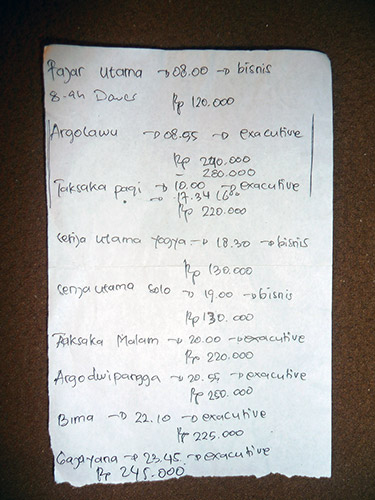 Fajar utama → 08.00 → bisnis
Rp 120.000
Argolawu → 08.55 → exacutive
Rp 240.000
- 280.000
Taksaka pagi → 10.00 → exacutive
→ 17.34
Rp 220.000
senja utama Yogya → 18.30 → bisnis
Rp 130.000
senja utama Solo → 19.00 → bisnis
Rp 130.000
Taksaka Malam → 20.00 → exacutive
Rp 220.000
Argodwipangga → 20.55 → exacutive
Rp 250.000
Bima → 22.10 → exacutive
Rp 225.000
Gajayana → 23.45. → exacutive
Rp 245.000